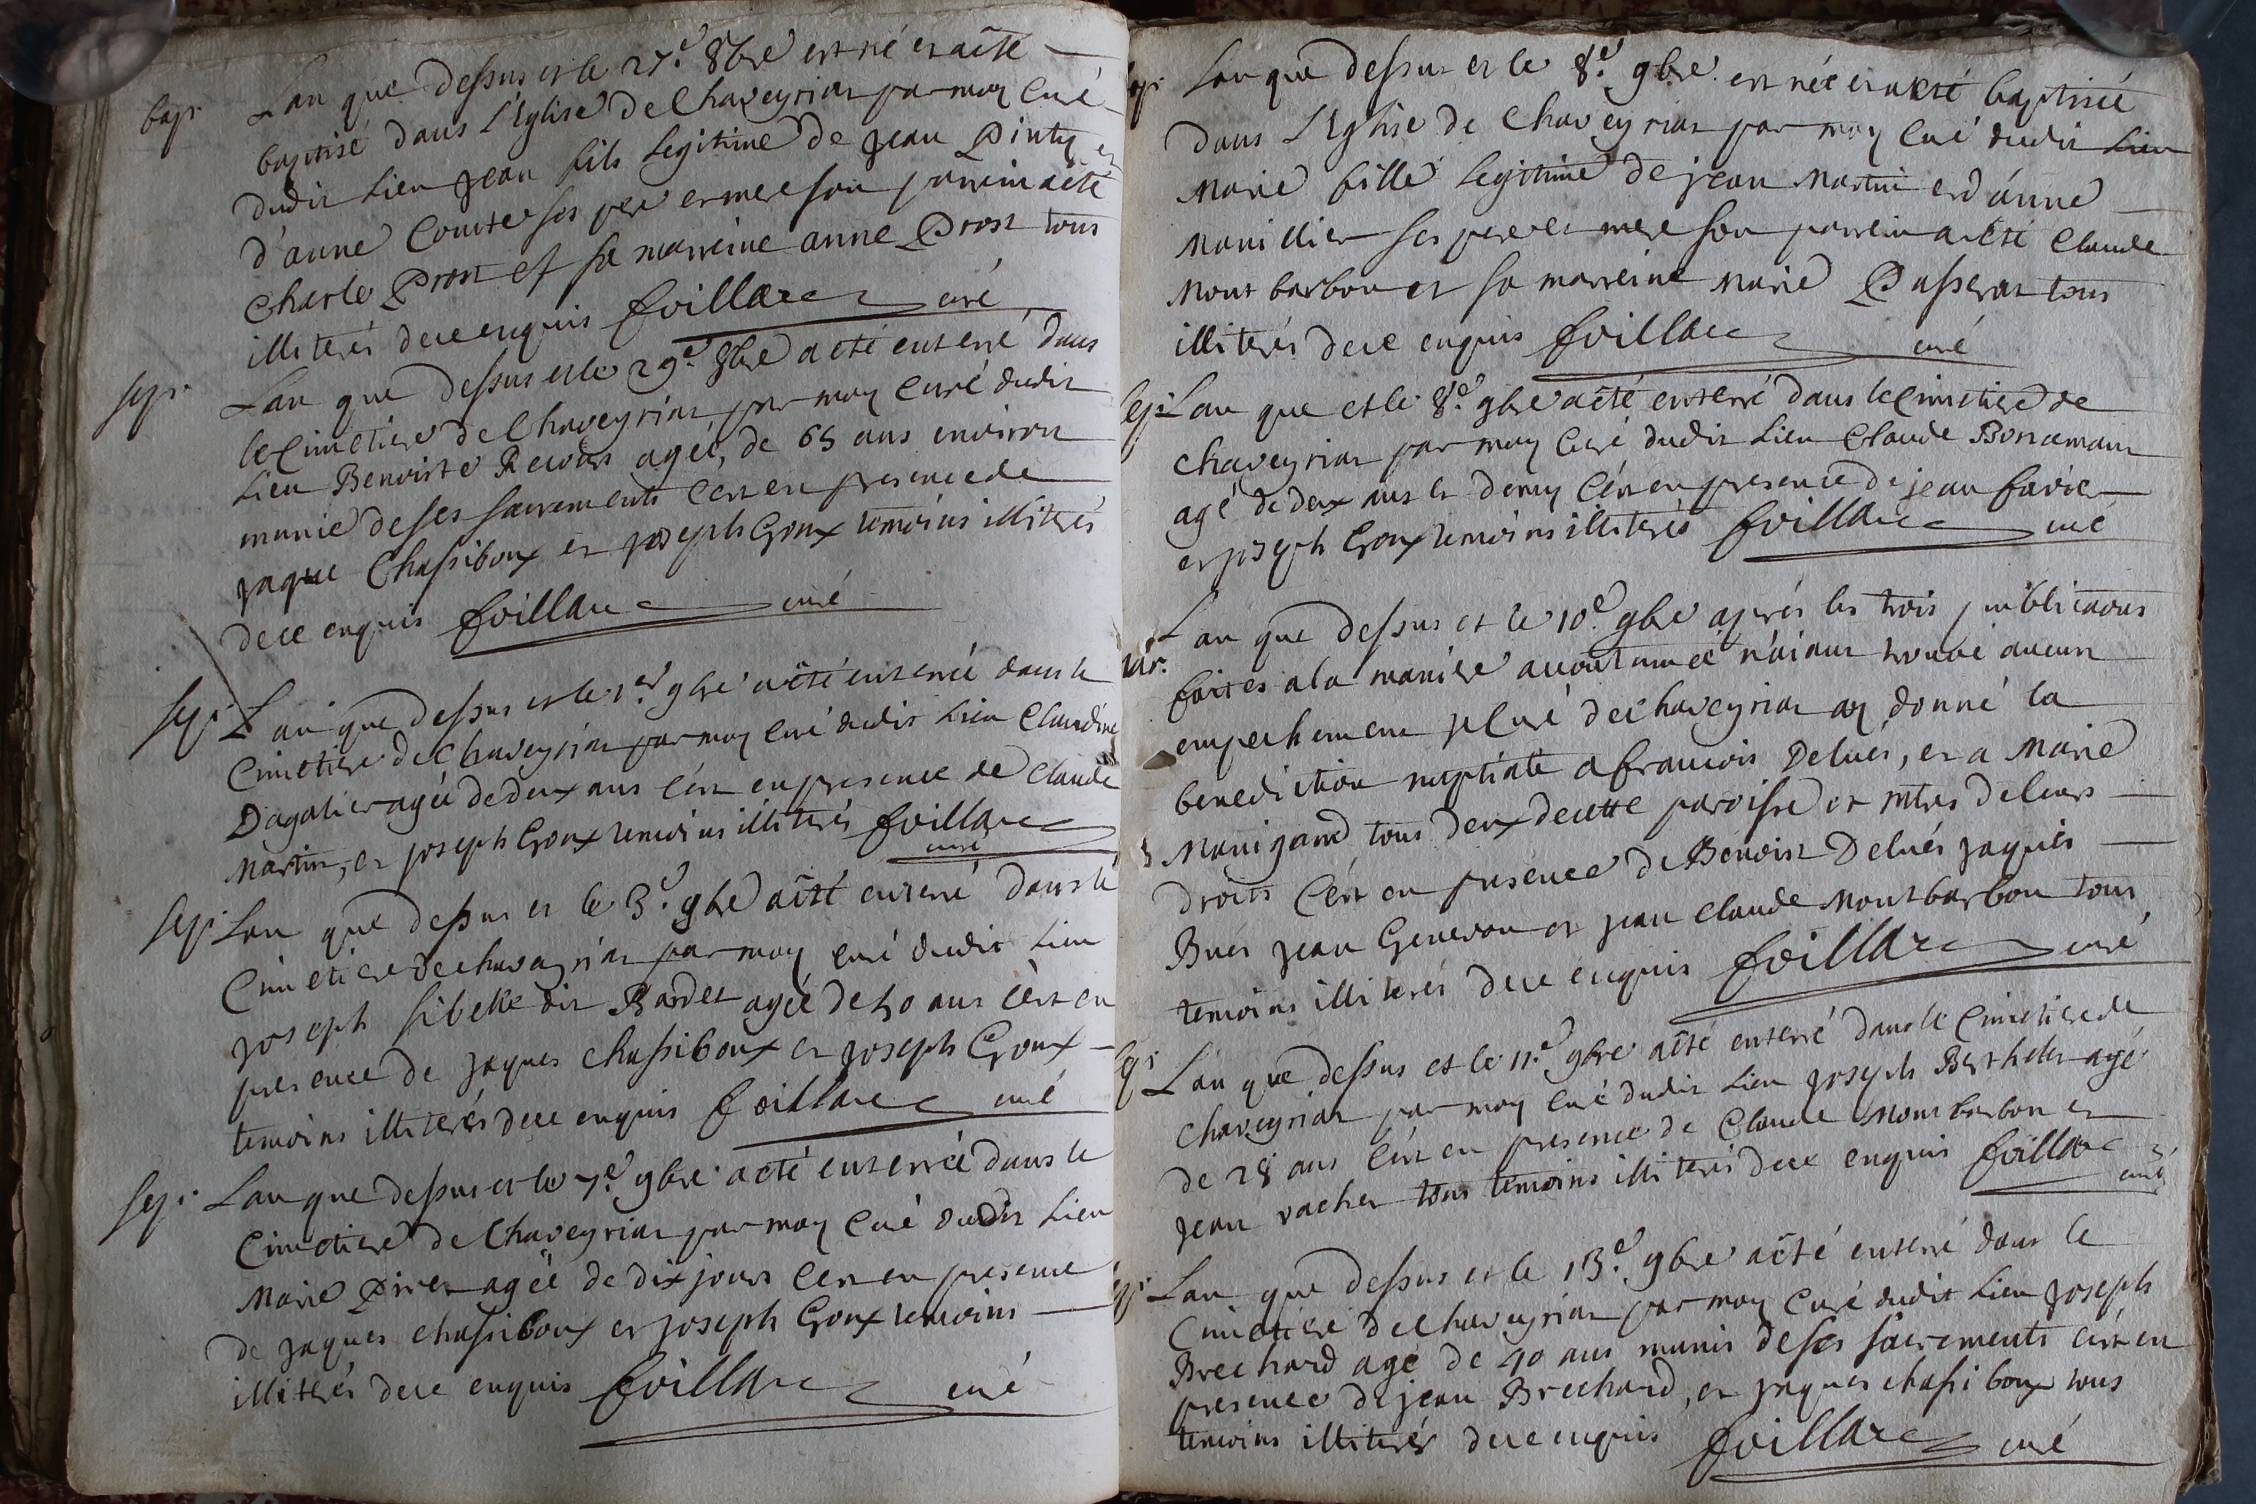 bap.
Lan que dessus et le 27.e 8bre est né et a été
baptisé dans L'Eglise de Chaveyriat par moy Curé
dudit Lieu Jean fils Legitime de Jean Pinty et
d'anne Courte ses pere et mere son parrein a été
Charle Prost et sa marreine anne Prost tous
illiterés de ce enquis foillard curé
sep.
Lan que dessus et le 29.e 8bre a été enterré dans
le Cimetiere de Chaveyriat par moy Curé dudit
Lieu Benoiste agée, de 65 ans environ
munie de ses sacrements C'est en presence de
Jaque Chassiboux et Joseph Groux temoins illiterés
de ce enquis foillard curé
sep.
Lan que dessus et le 1.er 9bre a été enterrée dans le
Cimetiere de Chaveyriat par moy Curé dudit Lieu Claudine
Dagalier agée de deux ans C'est en presence de Claude
Martin, et Joseph Groux temoins illiterés foillard
curé
sep.
Lan que dessus et le 3.e 9bre a été enterré dans le
Cimetiere de Chaveyriat par moy Curé dudit Lieu
Joseph Sibelle dit Bardet agée de 50 ans C'est en
presence de Jaques Chassiboux et Joseph Groux
temoins illiterés de ce enquis foillard curé
sep.
Lan que dessus et le 7.e 9bre a été enterrée dans le
Cimetiere de Chaveyriat par moy Curé dudit Lieu
Marie Piret agée de dix jours C'est en presence
de Jaques Chassiboux et Joseph Groux temoins
illiterés de ce enquis foillard curé
Lan que dessus et le 8.e 9bre est née et a été baptisée
dans L'Eglise de Chaveyriat par moy Curé dudit Lieu
Marie fille Legitime de Jean Martin et d'anne
Manillier ses pere et mere son parrein a été Claude
Montbarbon et sa marreine Marie Passerat tous
illiterés de ce enquis foillard curé
sep.
Lan que et le 8.e 9bre a été enterré dans le Cimetiere de
Chaveyriat par moy Curé dudit Lieu Claude
agé de deux ans et demy C'est en presence de Jean favier
et Joseph Groux temoins illiterés foillard curé
mar.
Lan que dessus et le 10.e 9bre aprés les trois publications
faites a la maniere accoutumée n'aiant trouvé aucun
empechement je Curé de Chaveyriat ay donné la
benediction nuptiale a francois Delués, et a Marie
Manigand tous deux de cette paroisse et mtres de leurs
droits C'est en presence de Benoist Delués Jaques
Buer Jean Genevon et Jean Claude Montbarbon tous
temoins illiterés de ce enquis foillard curé
Lan que dessus et le 11.e 9bre a été enterré dans le Cimetiere de
Chaveyriat par moy Curé dudit Lieu Joseph Berthelet agé
de 28 ans C'est en presence de Claude Montbarbon et
Jean vacher tous temoins illiterés de ce enquis foillard
curé
Lan que dessus et le 13.e 9bre a été enterré dans le
Cimetiere de Chaveyriat par moy Curé dudit Lieu Joseph
Brechard agé de 40 ans munis de ses sacrements C'est en
presence de Jean Brechard, et Jaques Chassiboux tous
temoins illiterés de ce enquis foillard curé